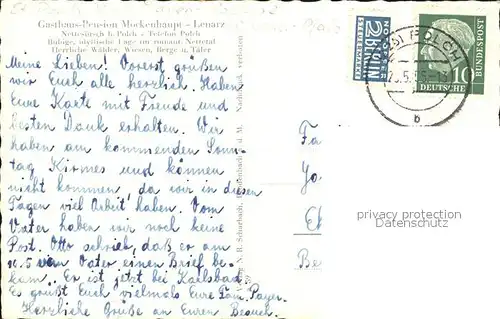 Gasthaus-Pension Mockenhaupt - Lenarz
Nettesürsch b. Polch • Telefon Polch
Ruhige, idyllische Lage im romant. Nettetal
Herrliche Wälder, Wiesen, Berge u. Täler
Meine Lieben! Vorerst grüßen
wir Euch alle herzlich. Haben
Eure Karte mit Freude und
besten Dank erhalten. Wir
haben am kommenden Sonn-
tag Kirmes und können
nicht kommen, da wir in diesen
Tagen viel Arbeit haben. Vom
Vater haben wir noch keine
Post. Otto schrieb, daß er am
10.5 von Vater einen Brief be-
kam. Er ist jetzt bei Karlsbad.
Es grüßt Euch vielmals Eure Fam. Payer.
Herzliche Grüße an Euren Besuch.
Nachdruck verboten
NOTOPFER
2 BERLIN
STEUERMARKE
POLCH
5.55-13
b
10
DEUTSCHE
BUNDESPOST
Fa
Jo
Et
Be
privacy protection
Datenschutz